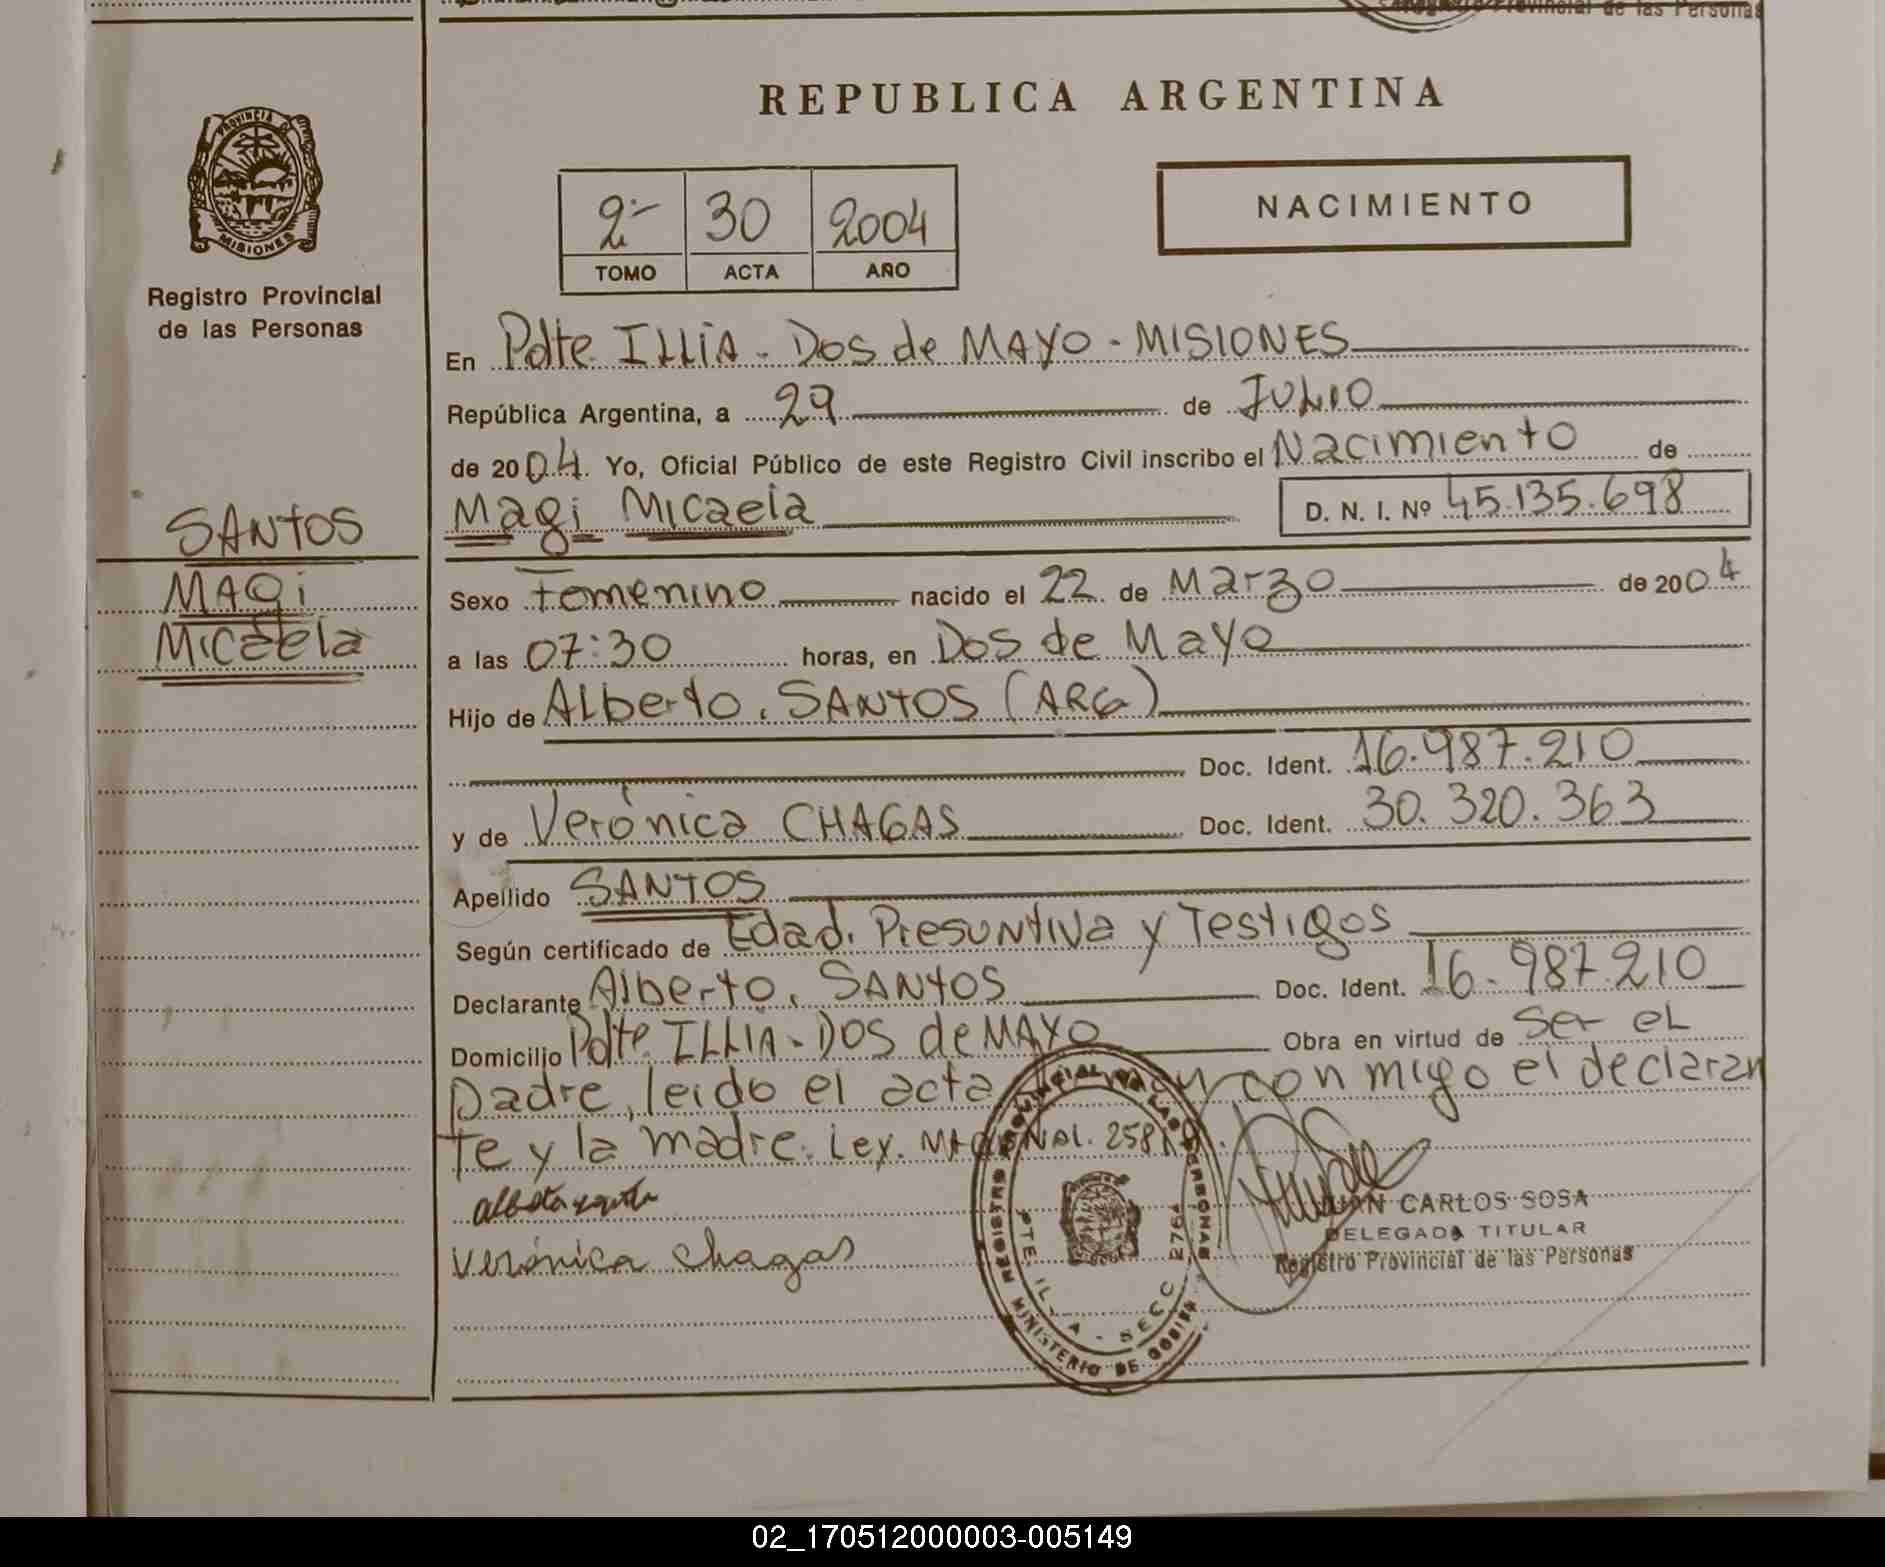 Provincial de las Personas
REPUBLICA ARGENTINA
PROVINCIA DE
MISIONES
Registro Provincial
de las Personas
2º- 30 2004
TOMO ACTA AÑO
NACIMIENTO
En Pdte. ILLIA - Dos de MAYO - MISIONES
República Argentina, a 29 de JULIO
de 2004. Yo, Oficial Público de este Registro Civil inscribo el Nacimiento de
SANTOS
MAGI
Micaela
Magi Micaela D. N. I. Nº 45.135.698
Sexo Femenino nacido el 22 de Marzo de 2004
a las 07:30 horas, en Dos de Mayo
Hijo de Alberto. SANTOS (ARG)
Doc. Ident. 16.987.210
y de Verónica CHAGAS Doc. Ident. 30.320.363
Apellido SANTOS
Según certificado de Edad. Presuntiva y Testigos
Declarante Alberto. SANTOS Doc. Ident. 16.987.210
Domicilio Pdte. ILLIA - DOS de MAYO Obra en virtud de Ser el
Padre, leido el acta con migo el declaran
te y la madre. Ley. 258
Verónica Chagas
REGISTRO PROVINCIAL DE LAS PERSONAS
MINISTERIO DE
PTE. SECC 276ª
JUAN CARLOS SOSA
DELEGADO TITULAR
Registro Provincial de las Personas
02_170512000003-005149